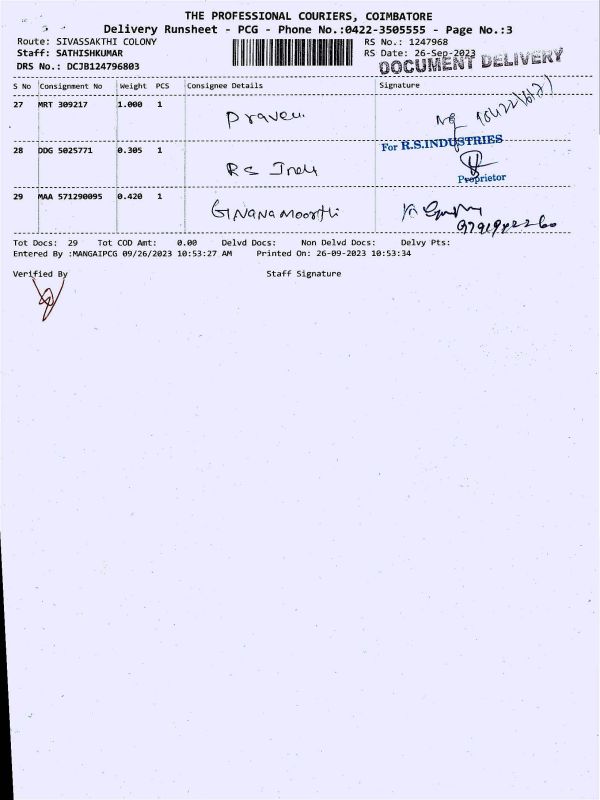 THE PROFESSIONAL COURIERS, COIMBATORE
Delivery Runsheet - PCG - Phone No.:0422-3505555 - Page No.:3
Route: SIVASSAKTHI COLONY RS No.: 1247968
Staff: SATHISHKUMAR RS Date: 26-Sep-2023
DRS No.: DCJB124796803 DOCUMENT DELIVERY
S No Consignment No Weight PCS Consignee Details Signature
27 MRT 309217 1.000 1 Praveen
28 DDG 5025771 0.305 1 RS Inds For R.S.INDUSTRIES
Proprietor
29 MAA 571290095 0.420 1 GNANAMOORTHI
Tot Docs: 29 Tot COD Amt: 0.00 Delvd Docs: Non Delvd Docs: Delvy Pts:
Entered By :MANGAIPCG 09/26/2023 10:53:27 AM Printed On: 26-09-2023 10:53:34
Verified By Staff Signature